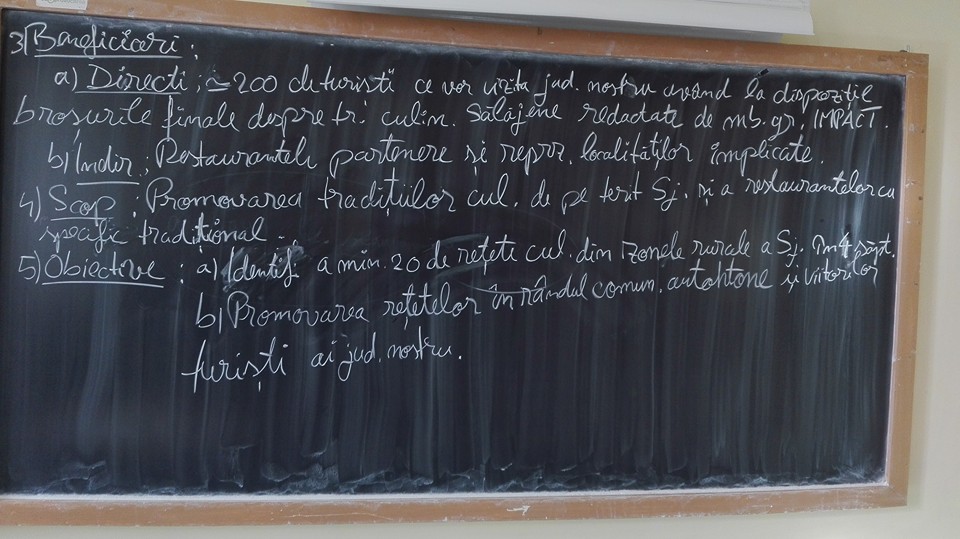 3) Beneficiari:
a) Directi: ≃200 de turisti ce vor vizita jud. nostru având la dispoziție
broșurile finale despre tr. culin. Sălăjene redactate de mb. gr. IMPACT.
b) Indir: Restaurantele partenere și repr. localităților implicate.
4) Scop: Promovarea tradițiilor cul. de pe terit Sj. și a restaurantelor cu
specific tradițional.
5) Obiective: a) Identif. a min. 20 de rețete cul. din zonele rurale a Sj. în 4 săpt.
b) Promovarea rețetelor în rândul comun. autohtone și viitorilor
turiști ai jud. nostru.